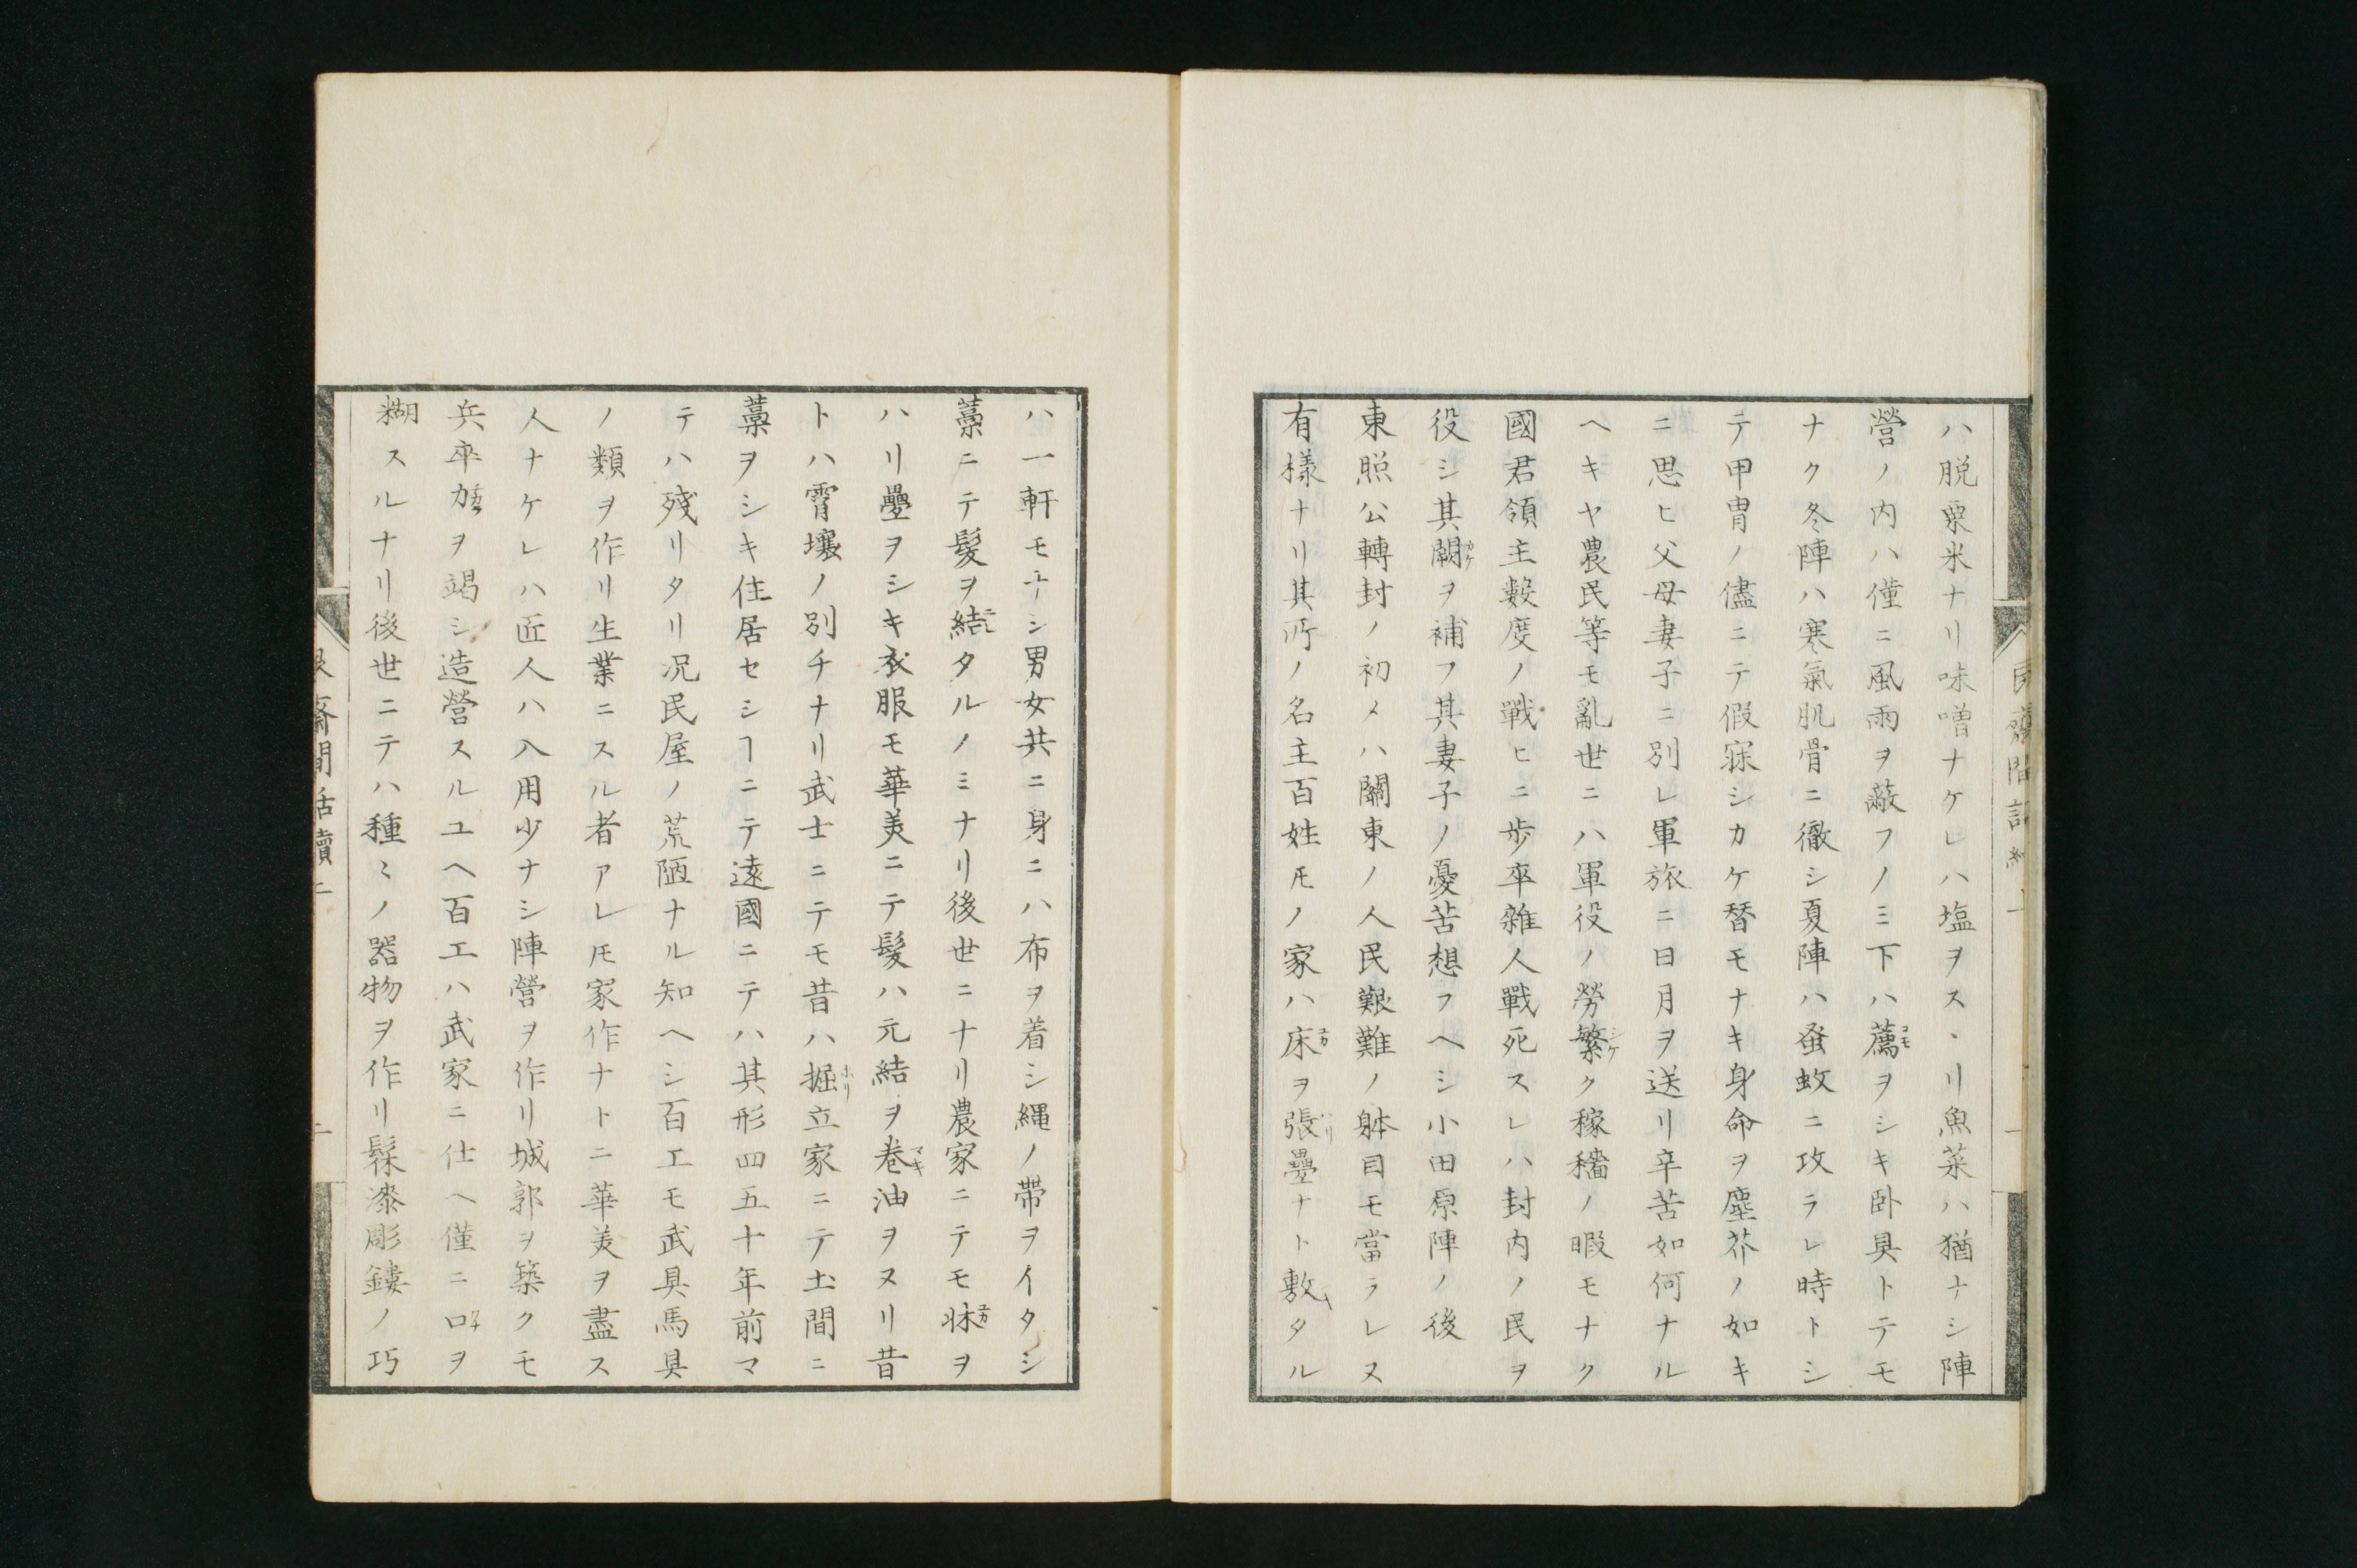 ハ脱粟米ナリ味噌ナケレハ塩ヲスヽリ魚菜ハ猶ナシ陣
營ノ内ハ僅ニ風雨ヲ蔽フノミ下ハ薦ヲシキ卧具トテモ
ナク冬陣ハ寒氣肌骨ニ徹シ夏陣ハ蚤蚊ニ攻ラレ時トシ
テ甲冑ノ儘ニテ假寐シカケ替モナキ身命ヲ塵芥ノ如キ
ニ思ヒ父母妻子ニ別レ軍旅ニ日月ヲ送リ辛苦如何ナル
ヘキヤ農民等モ亂世ニハ軍役ノ勞繁ク稼穡ノ暇モナク
國君領主數度ノ戰ヒニ歩卒雜人戰死スレハ封内ノ民ヲ
役シ其闕ヲ補フ其妻子ノ憂苦想フヘシ小田原陣ノ後
東照公轉封ノ初メハ關東ノ人民艱難ノ躰目モ當ラレヌ
有樣ナリ其所ノ名主百姓𪜈ノ家ハ床ヲ張疊ナト敷タル
ハ一軒モナシ男女共ニ身ニハ布ヲ着シ縄ノ帶ヲイタシ
藁ニテ髮ヲ結タルノミナリ後世ニナリ農家ニテモ牀ヲ
ハリ疊ヲシキ衣服モ華美ニテ髮ハ元結ヲ卷油ヲヌリ昔
トハ霄壤ノ別チナリ武士ニテモ昔ハ掘立家ニテ土間ニ
藁ヲシキ住居セシヿニテ遠國ニテハ其形四五十年前マ
テハ殘リタリ况民屋ノ荒陋ナル知ヘシ百工モ武具馬具
ノ類ヲ作リ生業ニスル者アレ𪜈家作ナトニ華美ヲ盡ス
人ナケレハ匠人ハ入用少ナシ陣營ヲ作リ城郭ヲ築クモ
兵卒力ヲ竭シ造營スルユヘ百工ハ武家ニ仕ヘ僅ニ口ヲ
糊スルナリ後世ニテハ種〻ノ器物ヲ作リ髹漆彫鏤ノ巧
齋間話續二
二